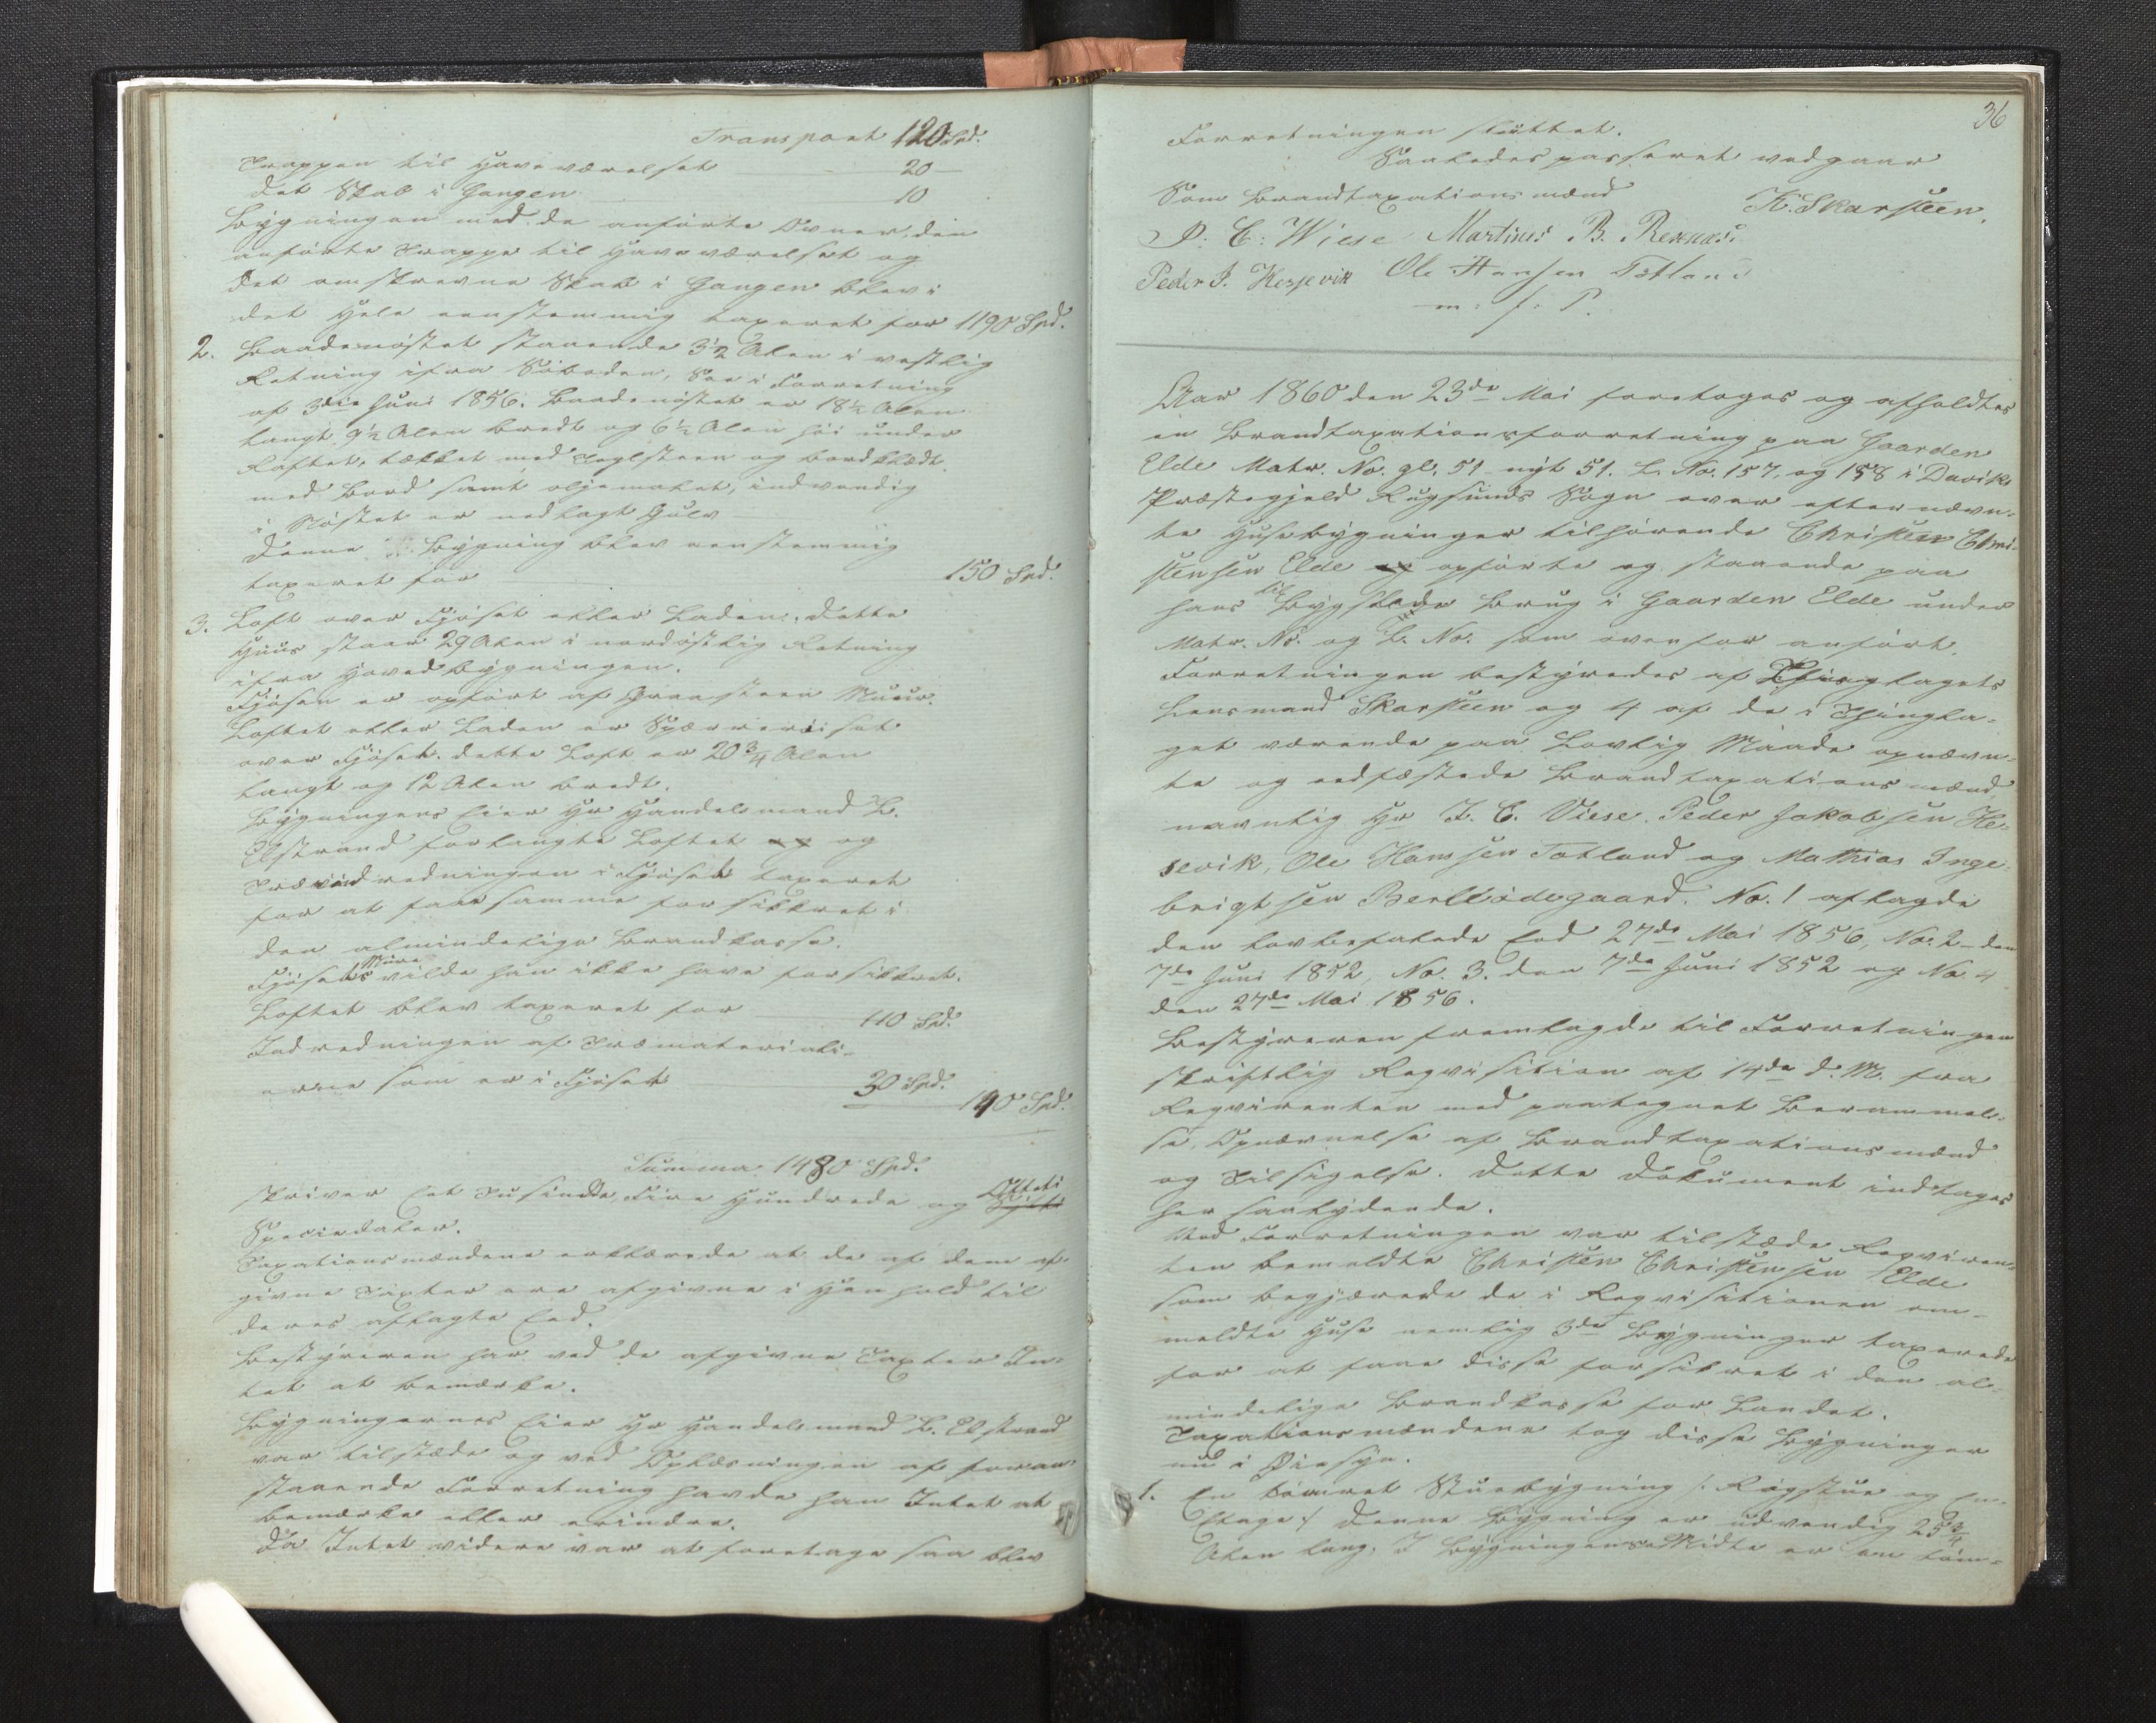 Transport 120 Spd.
Trappen til Haveværelset 20 —
det Skab i Gangen 10
Bygningen med de anførte Ovner, den
anførte Trappe til Haveværelset og
det omskrevne Skab i Gangen blev i
det Hele eenstemmig taxeret for 1190 Spd.
2. Baadenøstet staaende 3½ Alen i vestlig
Retning ifra Søboden, See i Forretning
af 3die Juni 1856. Baadenøstet er 18½ Alen
langt, 9½ Alen bredt og 6½ Alen høi under
Raftet, tækket med Teglsteen og bordklædt
med Bord samt oljemalet, indvendig
i Nøstet er nedlagt Gulv
Denne Bygning blev eenstemmig
taxeret for 150 Spd.
3. Loft over Fjøset eller Laden, dette
Huus staaer 29 Alen i nordøstlig Retning
ifra Hovedbygningen.
Fjøsen er opført af Graasteen Muur.
Loftet eller Laden er Spærrereiset
over Fjøset. dette Loft er 20¾ Alen
langt og 12 Alen bredt.
Bygningens Eier Hr Handelsmand L.
Elstrand forlangte Loftet og
Træindredningen i Fjøset taxeret
for at faae samme forsikkret i
den almindelige Brandkasse.
Fjøsets Mure vilde han ikke have forsikkret.
Loftet blev taxeret for 110 Spd.
Indredningen af Træmateriali-
erne som er i Fjøset 30 Spd.
140 Spd.
Summa 1480 Spd.
skriver Eet Tusinde Fire Hundrede og Otteti
Speciedaler.
Taxationsmændene erklærede at de af dem af-
givne Taxter ere afgivne i Henhold til
deres aflagte Eed.
Bestyreren har ved de afgivne Taxter In-
tet at bemærke.
Bygningernes Eier Hr Handelsmand L. Elstrand
var tilstæde og ved Oplæsningen af foran-
staaende Forretning havde han Intet at
bemærke eller erindre.
Da Intet videre var at foretage saa blev
36
Forretningen sluttet.
Saaledes passeret vedgaar
Som Brandtaxationsmænd K. Skarsteen.
P. C. Wiese Martinus B. Rexnæs.
Peder J. Hessevik Ole Hansen Totland
m. f. P.
Aar 1860 den 23de Mai foretoges og afholdtes
en Brandtaxationsforretning paa Gaarden
Elde Matr. No. gl. 51 nyt 51. L. No. 157. og 158 i Daviks
Præstegjeld Rugsunds Sogn over efternævn-
te Husebygninger tilhørende Christen Chri-
stensen Elde opførte og staaende paa
hans Brug i Gaarden Elde under
Matr. No. og L. No. som ovenfor anført.
Forretningen bestyredes af Thinglagets
Lensmand Skarsteen og 4 af de i Thingla-
get værende paa Lovlig Maade opnævn-
te og eedfæstede Brandtaxationsmænd
navnlig Hr I. C. Viese. Peder Jakobsen He-
sevik, Ole Hanssen Totland og Mathias Inge-
brigtsen Berlleødegaard. No. 1 aflagde
den lovbefalede Eed 27de Mai 1856, No. 2 den
7de Juni 1852, No. 3. den 7de Juni 1852 og No. 4
den 27de Mai 1856.
Bestyreren fremlagde til Forretningen
skriftlig Reqvisition af 14de d. M. fra
Reqvirenten med paategnet Berammel-
se, Opnævnelse af Brandtaxationsmænd
og Tilsigelse. Dette Dokument indtages
her saalydende.
Ved Forretningen var tilstæde Reqviren-
ten bemeldte Christen Christensen Elde
som begjærede de i Reqvisitionen om-
meldte Huse nemlig 3de Bygninger taxerede
for at faae disse forsikret i den al-
mindelige Brandkasse for Landet.
Taxationsmændene tog disse Bygninger
nu i Øiesyn.
1. En tømret Stuebygning /: Røgstue og En-
Etage :/ Denne Bygning er udvendig 25¾
Alen lang. I Bygningens Midte er en tøm-